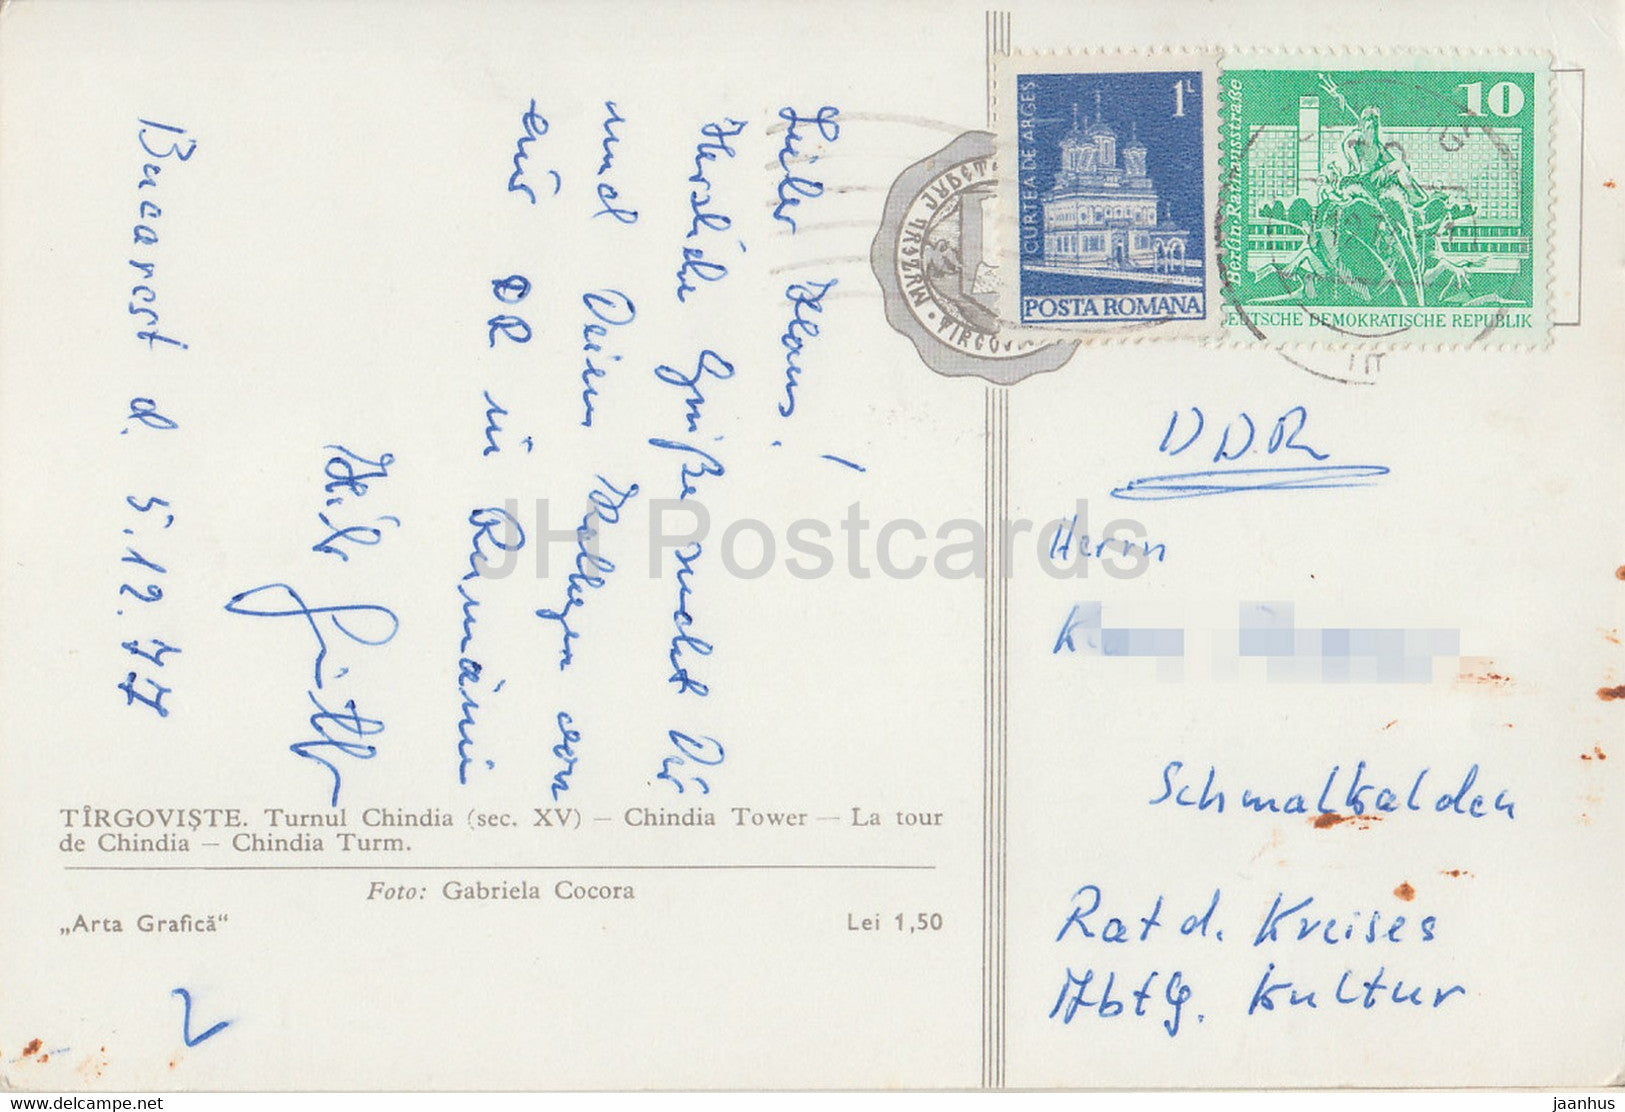 Lieber Klaus!
Herzliche Grüße sendet Dir
und Deinen Kollegen von
der DR in Rumänien
Bucarest d. 5.12.77
TÎRGOVIȘTE. Turnul Chindia (sec. XV) – Chindia Tower – La tour
de Chindia – Chindia Turm.
Foto: Gabriela Cocora
„Arta Grafică“
Lei 1,50
CURTEA DE ARGEȘ
1L
POSTA ROMANA
Berlin Rathausstraße
10
DEUTSCHE DEMOKRATISCHE REPUBLIK
DDR
Herrn
K
Schmalkalden
Rat d. Kreises
Abtlg. Kultur
JH Postcards
www.delcampe.net
jaanhus